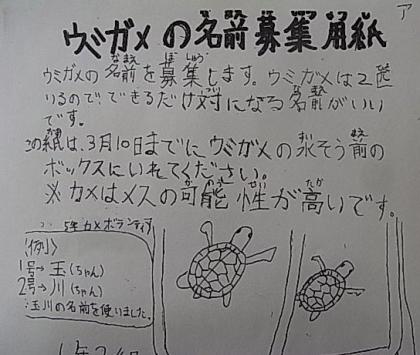 ア
ウミガメの名前募集用紙
ウミガメの名前を募集します。ウミガメは2匹
いるので、できるだけ対になる名前がいい
です。
この紙は、3月10日までにウミガメの水そう前の
ボックスにいれてください。
※カメはメスの可能性が高いです。
5年カメボランティア
〈例〉
1号→玉(ちゃん)
2号→川(ちゃん)
:玉川の名前を使いました。